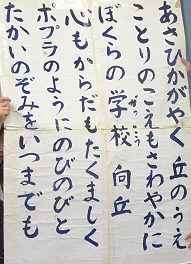 あさひかがやく 丘のうえ
ことりのこえもさわやかに
ぼくらの 学校 向丘
がっこう
心もからだもたくましく
ポプラのようにのびのびと
たかいのぞみをいつまでも